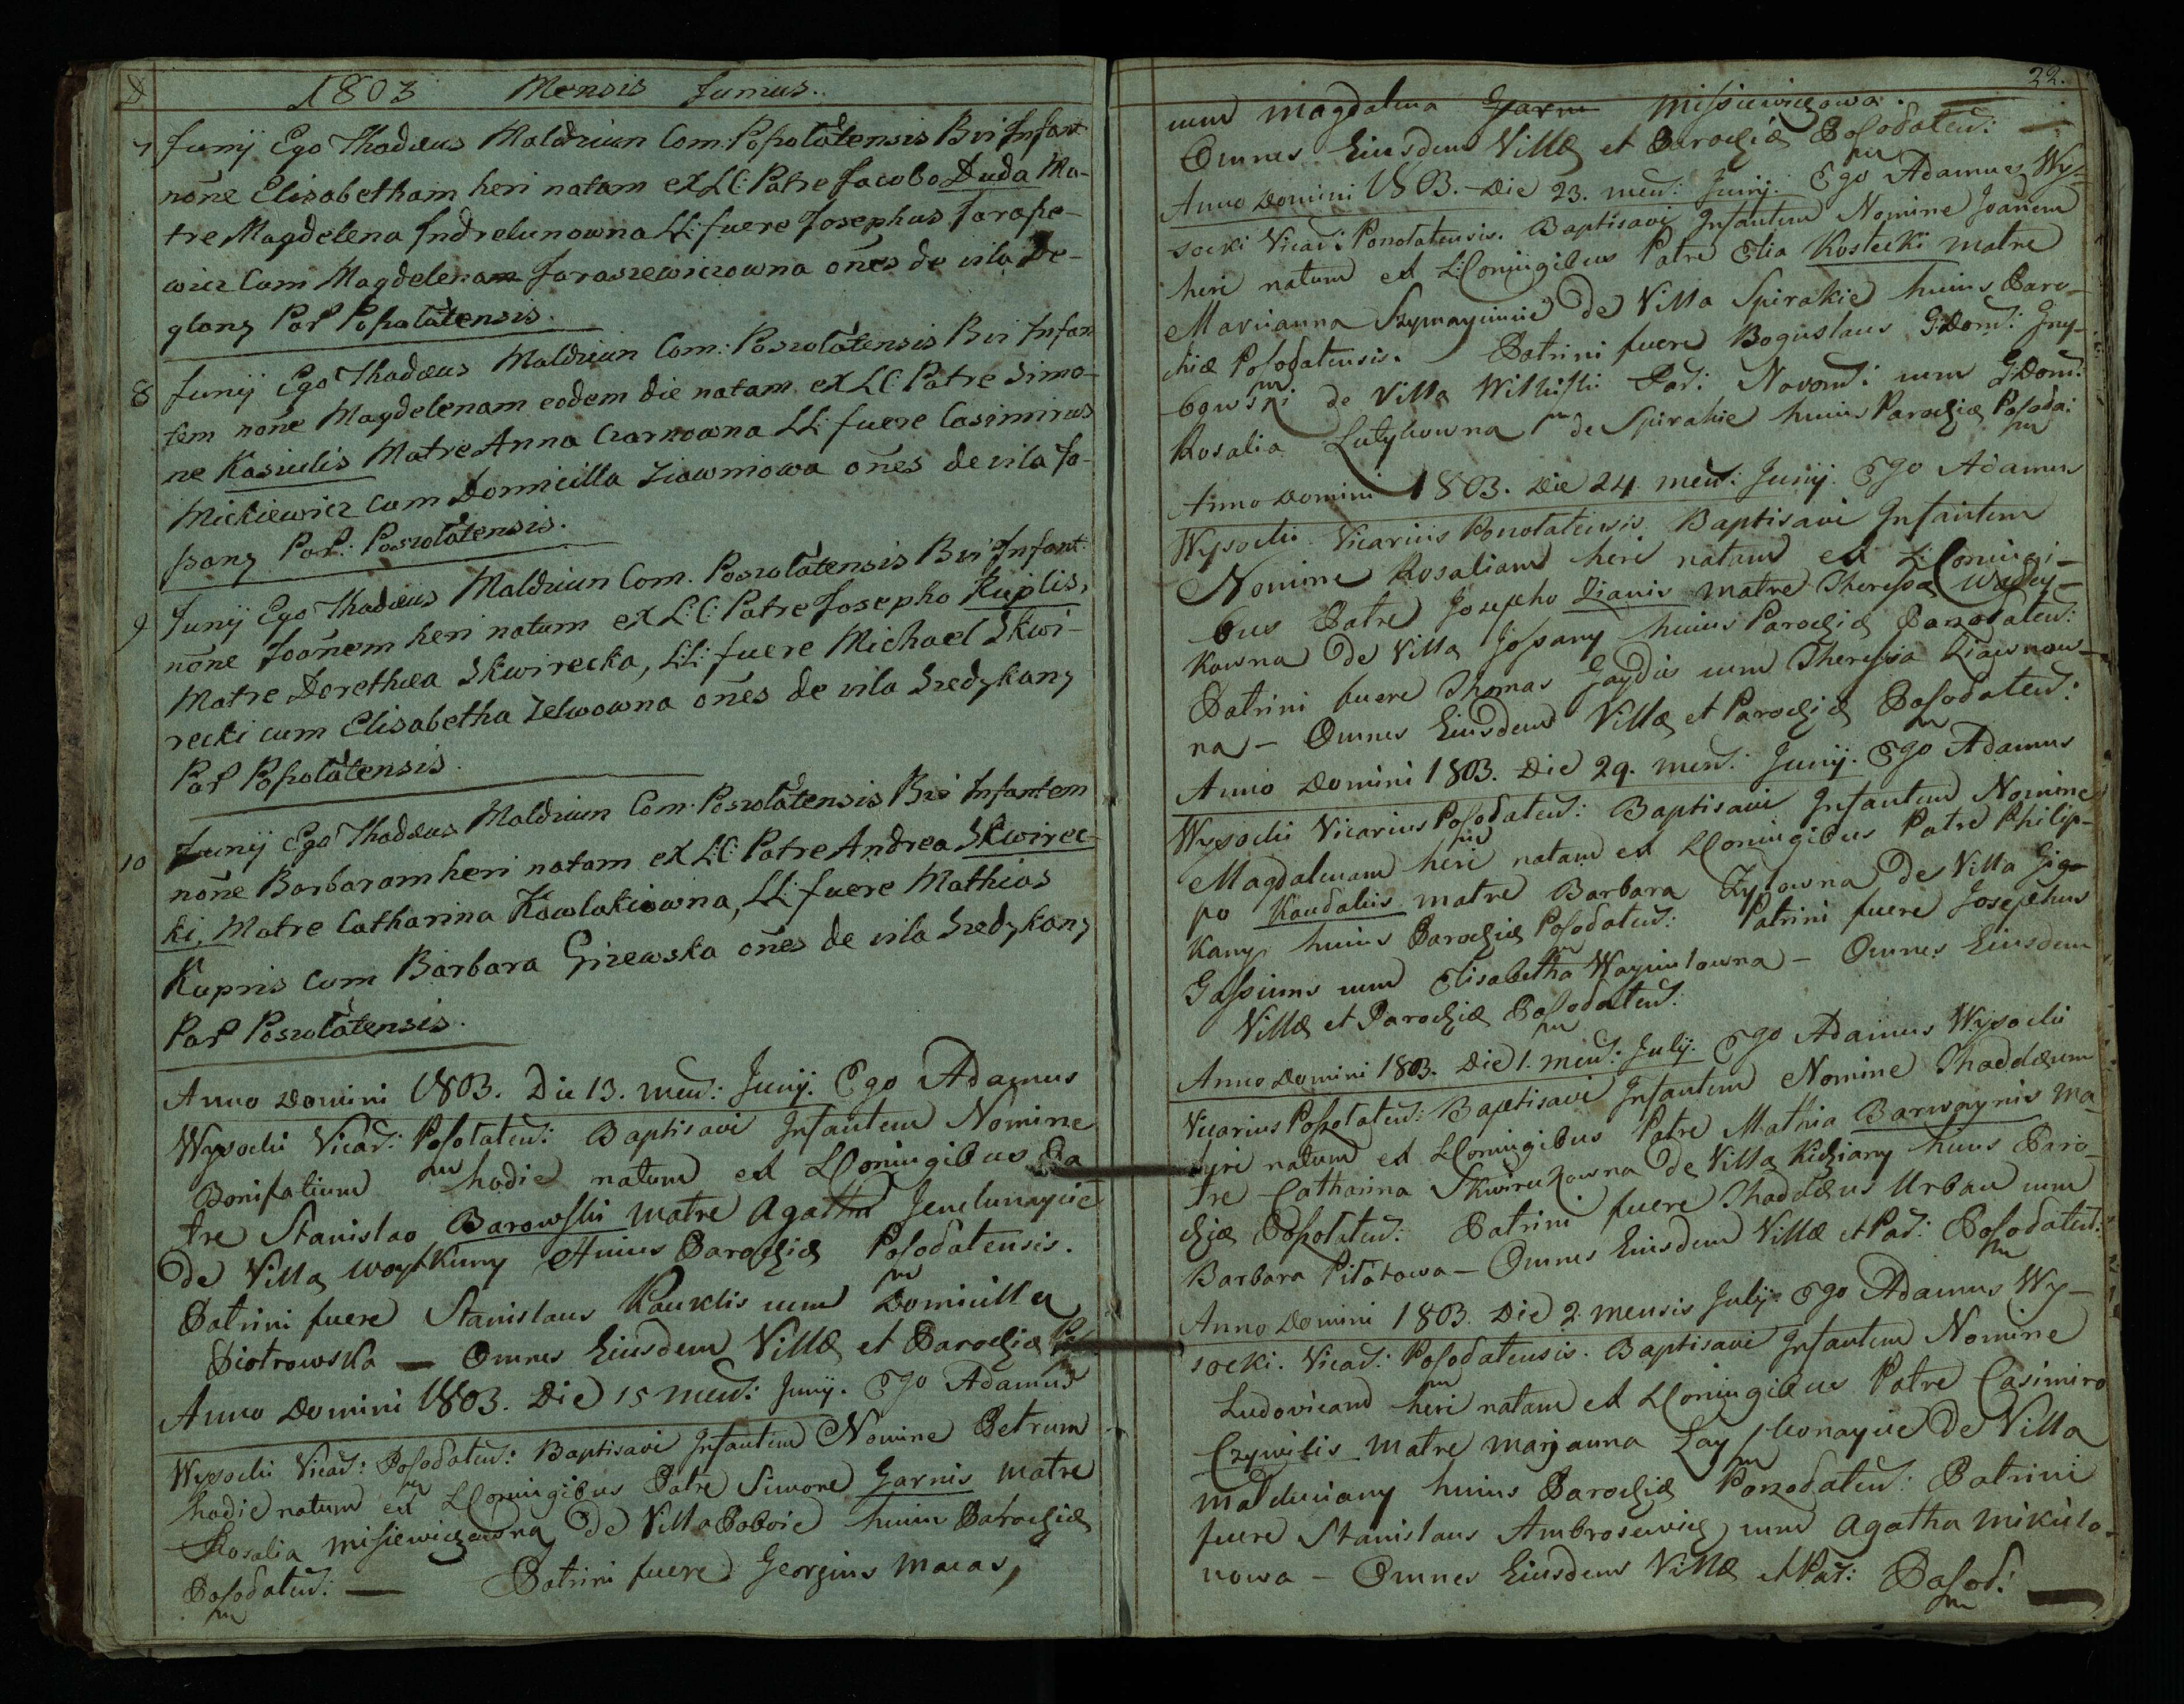 D 1803 Mensis Junius..
7 Junij Ego Thadæus Maldziun Com: Poszolatensis Bvi Infant
nõne Elisabetham heri natam ex LC: Patre Jacobo Duda Ma-
tre Magdelena Indrelunowna LL: fuere Josephus Jarasze-
wicz Cum Magdelenam Jaraszewiczowna onẽs de vila De-
glany Par Poszolatensis.
8 Junij Ego Thadæus Maldziun Com: Poszolatensis Bvi Infan
tem nõne Magdelenam eodem die natam ex LC: Patre Simo-
ne Kasiulis Matre Anna Czarnowna LL: fuere Casimirus
Mickiewicz cum Domicilla Ziawniowa onẽs de vila Jo-
ssany Par: Poszolatensis.
9 Junij Ego Thadæus Maldziun Com. Poszolatensis Bvi Infant
nõne Joãnem heri natum ex L:C: Patre Josepho Kuplis,
Matre Dorethæa Skwirecka, LL: fuere Michael Skwi-
recki cum Elisabetha Zelwowna onẽs de vila Szedykany
Par Poszolatensis.
10 Junij Ego Thadæus Maldziun Com: Poszolatensis Bvi Infantem
nõne Barbaram heri natam ex L:C: Patre Andrea Skwirec-
ki, Matre Catharina Kowlakiowna, LL: fuere Mathias
Kupris cum Barbara Gizewska onẽs de vila Szedykany
Par Poszolatensis.
Anno Domini 1803. Die 13. men: Junij. Ego Adamus
Wysocki Vicar: Posolaten: Baptisavi Infantem Nomine
Bonifatium hodie natum ex LConiugibus Pa
tre Stanislao Barowski matre Agatha Jenclunaycie
de Villa Woytkuny Huius Parochiæ Posolatensis.
Patrini fuere Stanislaus Kauklis cum Domicilla
Piotrowska — Omnes Eiusdem Villæ et Parochiæ
Anno Domini 1803. Die 15 men: Junij. Ego Adamus
Wysocki Vicar: Posolaten: Baptisavi Infantem Nomine Petrum
hodie natum ex LConiugibus Patre Simone Garnis matre
Rosalia Misiewiczowna de Villa Boboie huius Parochiæ
Posolaten: — Patrini fuere Georgius Macas,
22.
cum Magdalena Garn Missiewiczowa.
Omnes Eiusdem Villæ et Parochiæ Posolaten: —
Anno Domini 1803. Die 23. men: Junij. Ego Adamus Wy-
socki Vicar: Ponolatensis. Baptisavi Infantem Nomine Joanem
heri natum ex L:Coniugibus Patre Elia Kostecki matre
Marianna Szymayciuie de Villa Spirakie huius Paro-
chiæ Posolatensis. Patrini fuere Boguslaus GDom: Gry-
bowski de Villa Par: Novom: cum GDom:
Rosalia Lutykowna de Spirakie huius Parochiæ Posola:
Anno Domini 1803. Die 24. men: Junij. Ego Adamus
Wysocki Vicarius Ponolatensis. Baptisavi Infantem
Nomine Rosaliam heri natam ex L:Coniugi-
bus Patre Josepho Zianis matre Theressa
kowna de Villa Jossany huius Parochiæ Posolaten:
Patrini fuere Thomas Gaydis cum Theressia Ziawnow-
na — Omnes Eiusdem Villæ et Parochiæ Posolaten:
Anno Domini 1803. Die 29. men: Junij. Ego Adamus
Wysocki Vicarius Posolaten: Baptisavi Infantem Nomine
Magdalenam heri natam ex LConiugibus Patre Philip-
po Kaudalis matre Barbara Zyzowna de Villa Giga
kany huius Parochiæ Posolaten: Patrini fuere Josephus
Gassiunis cum Elisabetha Wayciulowna — Omnes Eiusdem
Villæ et Parochiæ Posolaten:
Anno Domini 1803. Die 1. men: Julij. Ego Adamus Wysocki
Vicarius Posolaten: Baptisavi Infantem Nomine Thaddæum
heri natum ex LConiugibus Patre Mathia Barwaynis ma-
tre Catharina Skwireckowna de Villa Kidziany huius Paro-
chiæ Posolaten: Patrini fuere Thaddæus Urban cum
Barbara Pilatowa — Omnes Eiusdem Villæ et Par: Posolaten:
Anno Domini 1803. Die 2. mensis Julij. Ego Adamus Wy-
socki. Vicar: Posolatensis. Baptisavi Infantem Nomine
Ludovicam heri natam ex LConiugibus Patre Casimiro
Czywilis matre Marjanna de Villa
Malduciany huius Parochiæ Ponolaten: Patrini
fuere Stanislaus Ambrosewicz cum Agatha Mikulo-
nowa — Omnes Eiusdem Villæ et Par: Posol: —